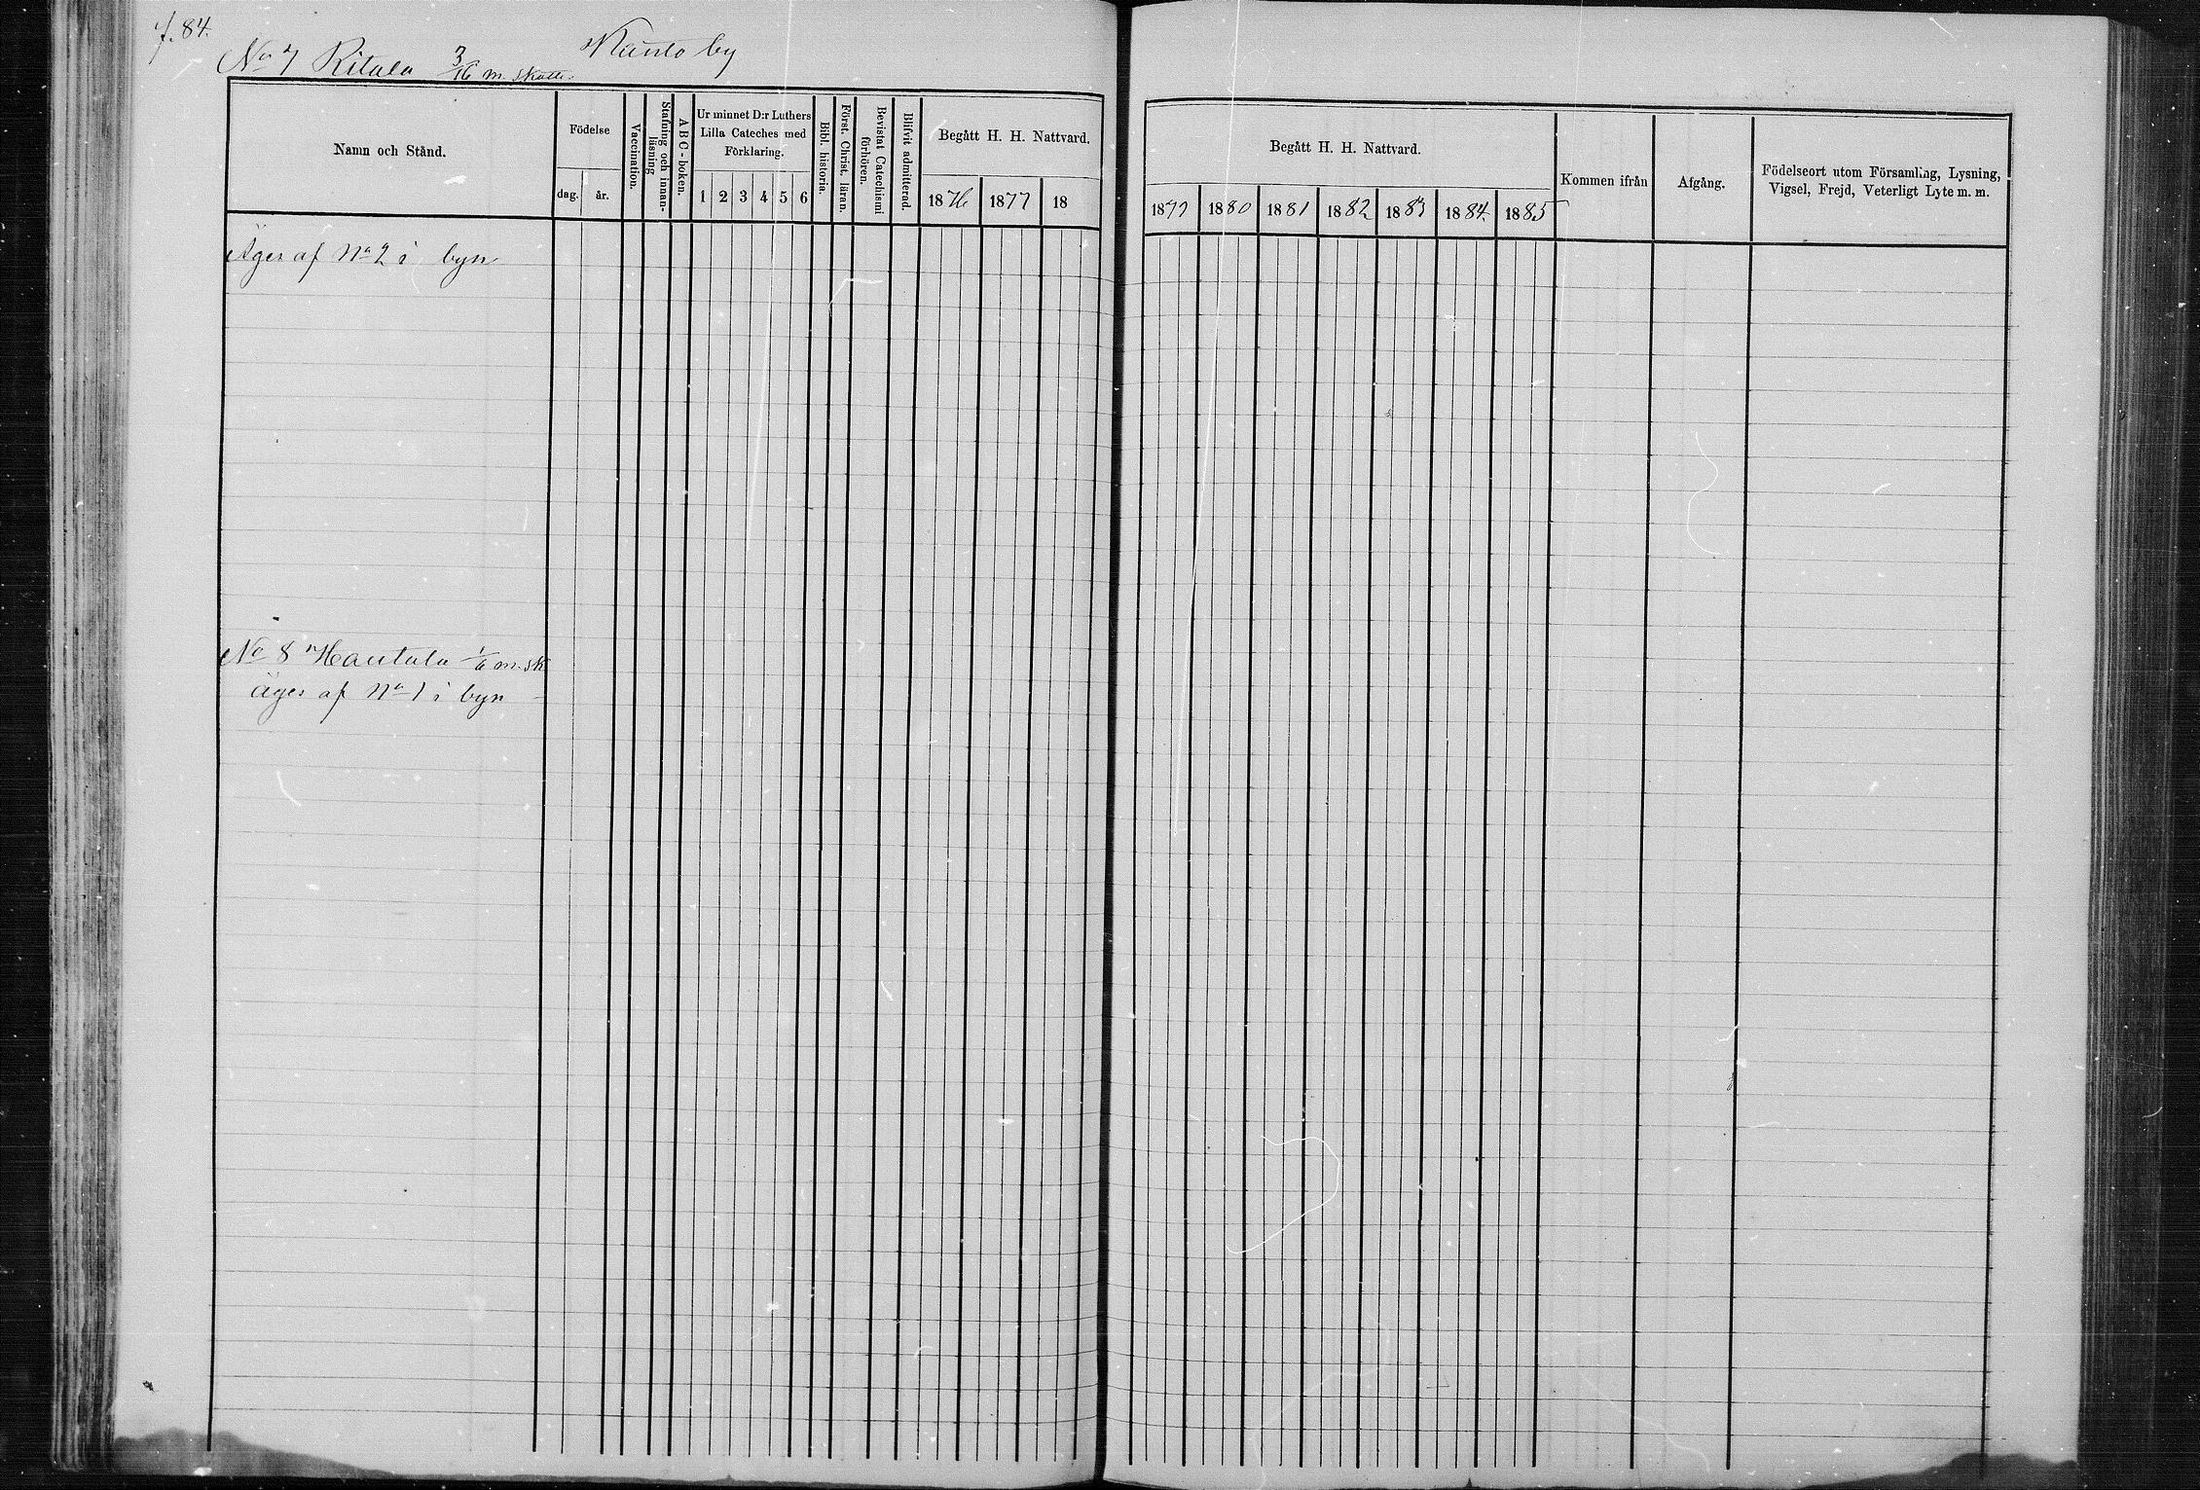 f. 84.
No 7 Ritala 3/16 m. skatt. Kanto by
Namn och Stånd.
Födelse
dag.
år.
Vaccination.
Stafning och innan-
läsning
A B C - boken.
Ur minnet D:r Luthers
Lilla Cateches med
Förklaring.
1 2 3 4 5 6
Bibl. historia.
Först. Christ. läran.
Bevistat Catechismi
förhören.
Blifvit admitterad.
Begått H. H. Nattvard.
1876 1877 18
Begått H. H. Nattvard.
1879 1880 1881 1882 1883 1884 1885
Kommen ifrån
Afgång.
Födelseort utom Församling, Lysning,
Vigsel, Frejd, Veterligt Lyte m. m.
Äges af No 2 i byn
No 8 Hautala 1/6 m. sk
äges af No 1 i byn